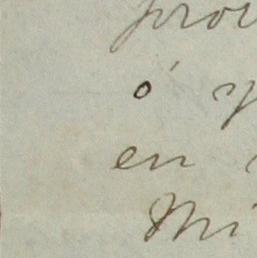 prov
ó y
en
Mi